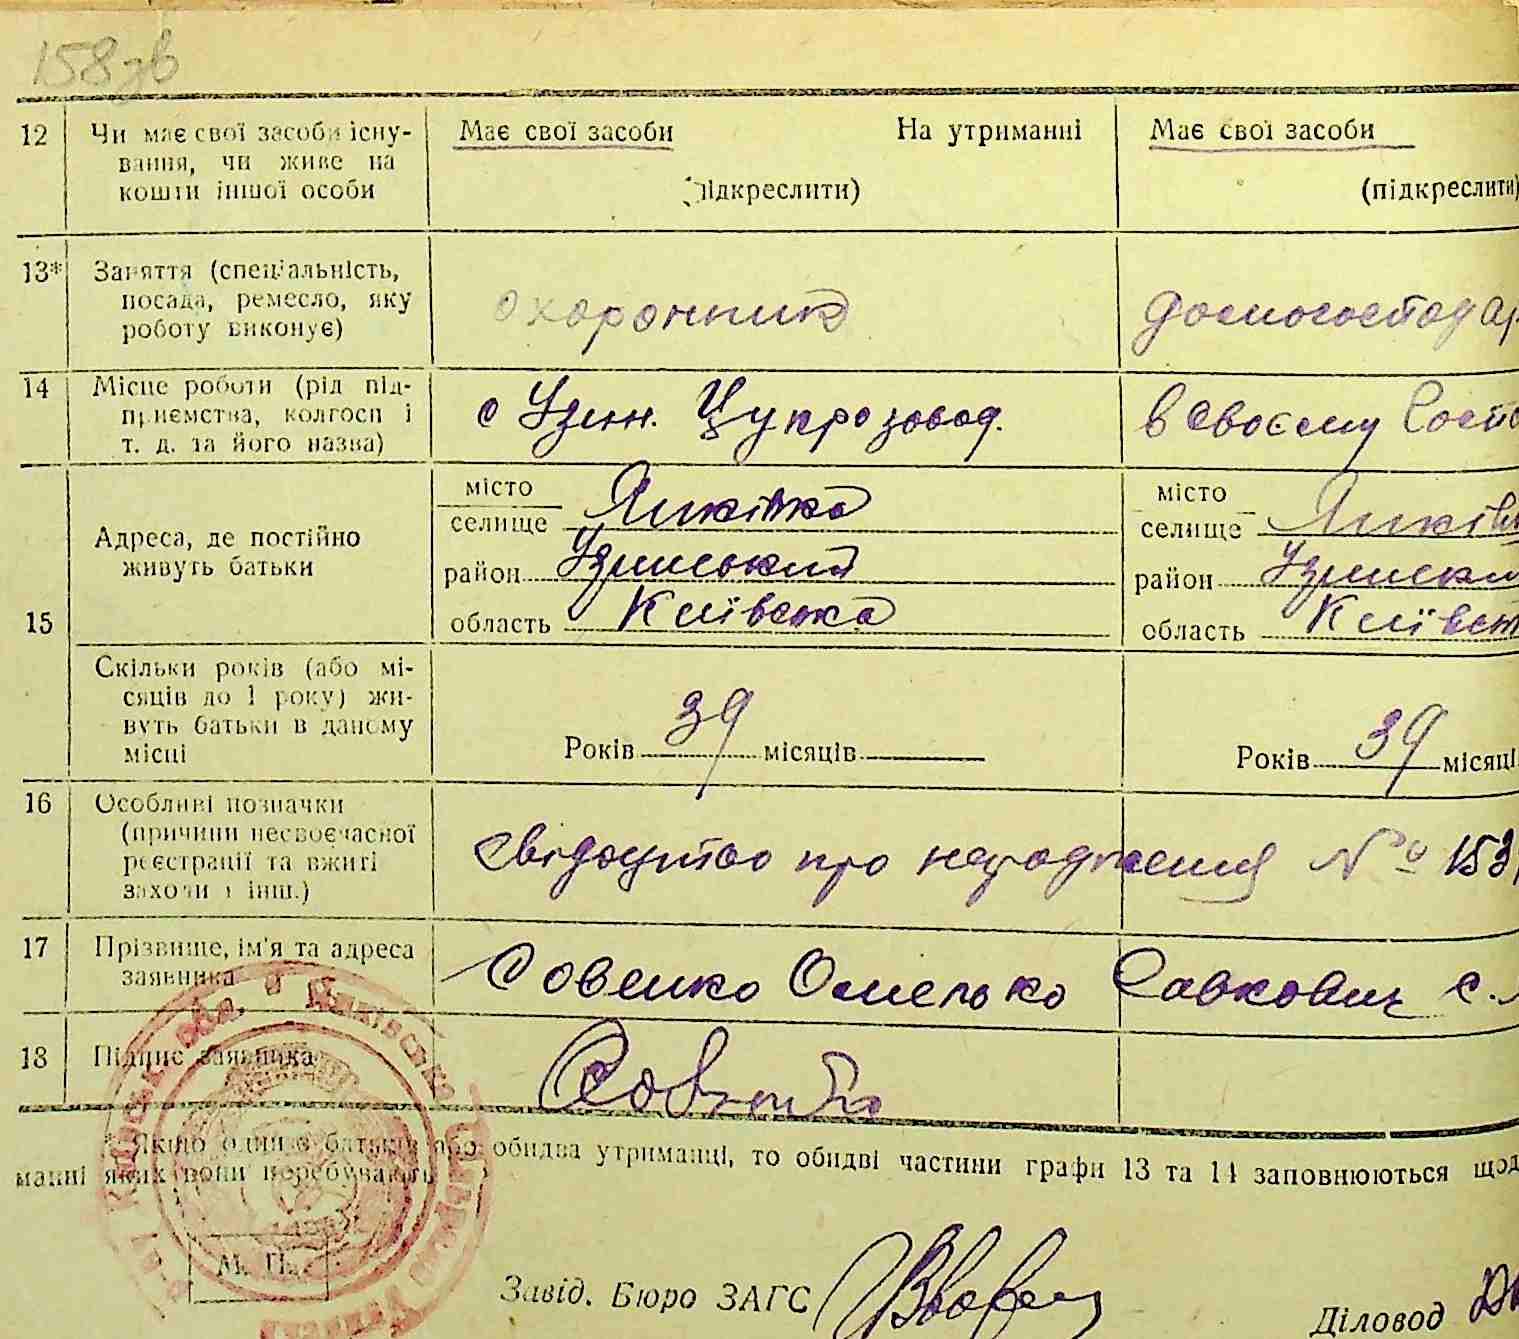 158зв
12 Чи має свої засоби існу- Має свої засоби На утриманні Має свої засоби
вання, чи живе на
кошти іншої особи (підкреслити) (підкреслити)
13* Заняття (спеціальність,
посада, ремесло, яку охоронник домогосподар
роботу виконує)
14 Місце роботи (рід під-
приємства, колгосп і с Узин. Цукрозавод. в своєму Госпо
т. д. та його назва)
15 Адреса, де постійно
живуть батьки
місто місто
селище Янківка селище Янків
район Узинський район Узинськи
область Київська область Київсь
Скільки років (або мі-
сяців до 1 року) жи-
вуть батьки в даному
місці Років 39 місяців Років 39 місяці
16 Особливі позначки
(причини несвоєчасної
реєстрації та вжиті свідоцтво про народження № 153
заходи і інш.)
17 Прізвище, ім'я та адреса
заявника Совенко Омелько Савкович с.
18 Підпис заявника
* Якщо один з батьків або обидва утриманці, то обидві частини графи 13 та 14 заповнюються щод
манні яких вони перебувають
М. П.
Завід. Бюро ЗАГС
Діловод